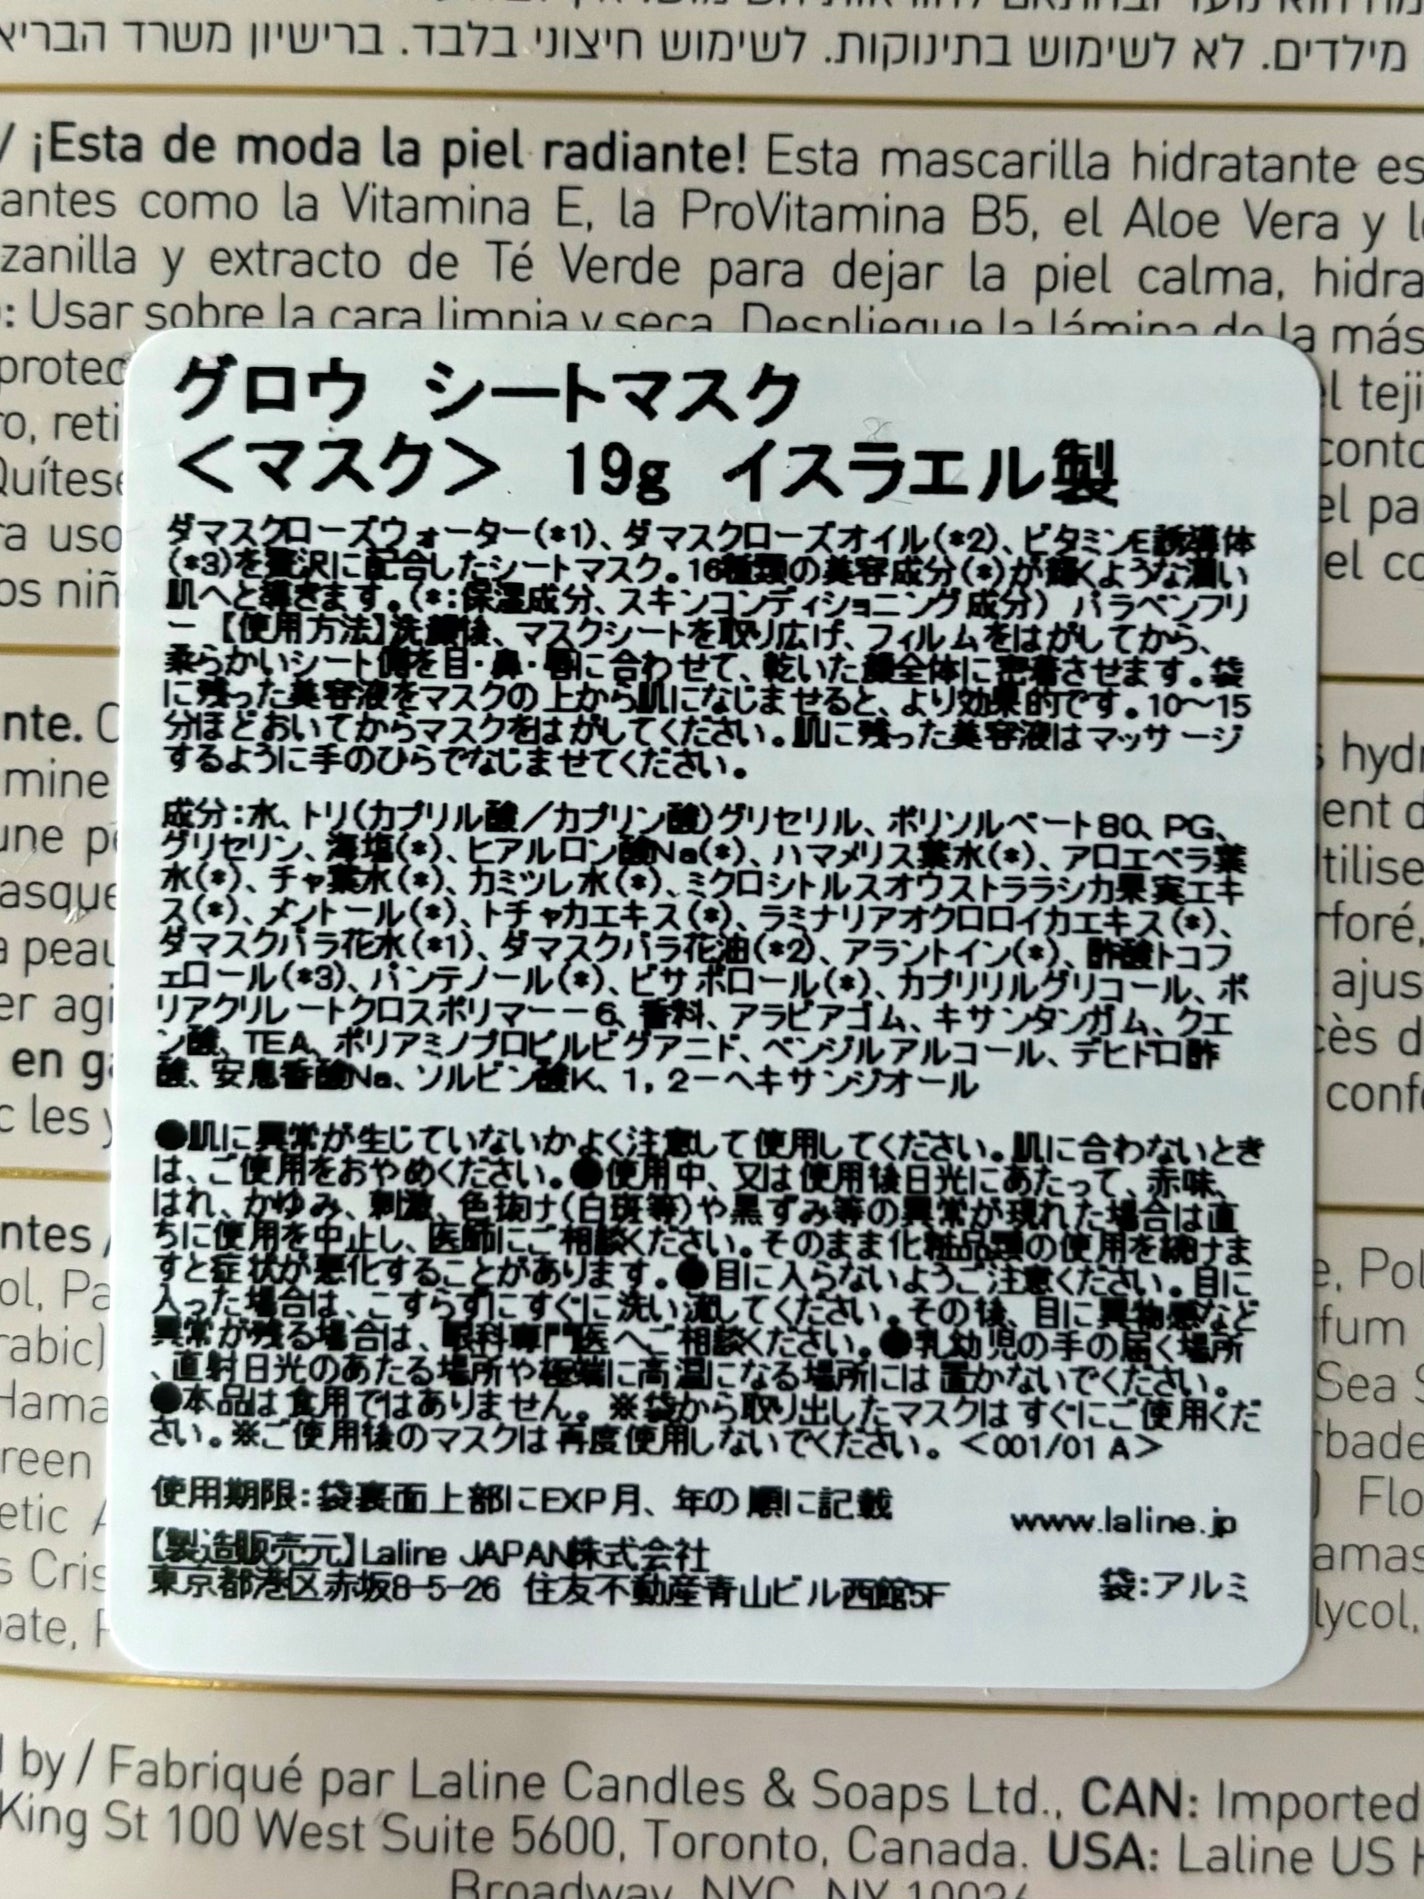 מילדים. לא לשימוש בתינוקות. לשימוש חיצוני בלבד. ברישיון משרד הבריא
/ ¡Esta de moda la piel radiante! Esta mascarilla hidratante es
antes como la Vitamina E, la ProVitamina B5, el Aloe Vera y l
zanilla y extracto de Té Verde para dejar la piel calma, hidra
: Usar sobre la cara limpia y seca. Despliegue la lámina de la más
protec
l teji
ro, reti
conto
Quítese
el pa
ra uso
el co
os niñ
グロウ シートマスク
<マスク> 19g イスラエル製
ダマスクローズウォーター(*1)、ダマスクローズオイル(*2)、ビタミンE誘導体
(*3)を贅沢に配合したシートマスク。16種類の美容成分(*)が輝くような潤い
肌へと導きます。(*:保湿成分、スキンコンディショニング成分) パラベンフリ
ー 【使用方法】洗顔後、マスクシートを取り広げ、フィルムをはがしてから、
柔らかいシート側を目・鼻・唇に合わせて、乾いた顔全体に密着させます。袋
に残った美容液をマスクの上から肌になじませると、より効果的です。10～15
分ほどおいてからマスクをはがしてください。肌に残った美容液はマッサージ
するように手のひらでなじませてください。
成分:水、トリ(カプリル酸/カプリン酸)グリセリル、ポリソルベート80、PG、
グリセリン、海塩(*)、ヒアルロン酸Na(*)、ハマメリス葉水(*)、アロエベラ葉
水(*)、チャ葉水(*)、カミツレ水(*)、ミクロシトルスオウストララシカ果実エキ
ス(*)、メントール(*)、トチャカエキス(*)、ラミナリアオクロロイカエキス(*)、
ダマスクバラ花水(*1)、ダマスクバラ花油(*2)、アラントイン(*)、酢酸トコフ
ェロール(*3)、パンテノール(*)、ビサボロール(*)、カプリリルグリコール、ポ
リアクリレートクロスポリマー－6、香料、アラビアゴム、キサンタンガム、クエ
ン酸、TEA、ポリアミノプロピルビグアニド、ベンジルアルコール、デヒドロ酢
酸、安息香酸Na、ソルビン酸K、1,2－ヘキサンジオール
●肌に異常が生じていないかよく注意して使用してください。肌に合わないとき
は、ご使用をおやめください。●使用中、又は使用後日光にあたって、赤味、
はれ、かゆみ、刺激、色抜け(白斑等)や黒ずみ等の異常が現れた場合は直
ちに使用を中止し、医師にご相談ください。そのまま化粧品類の使用を続けま
すと症状が悪化することがあります。●目に入らないようご注意ください。目に
入った場合は、こすらずにすぐに洗い流してください。その後、目に異物感など
異常が残る場合は、眼科専門医へご相談ください。●乳幼児の手の届く場所
、直射日光のあたる場所や極端に高温になる場所には置かないでください。
●本品は食用ではありません。※袋から取り出したマスクはすぐにご使用くだ
さい。※ご使用後のマスクは再度使用しないでください。<001/01 A>
使用期限:袋裏面上部にEXP月、年の順に記載
www.laline.jp
【製造販売元】Laline JAPAN株式会社
東京都港区赤坂8-5-26 住友不動産青山ビル西館5F
袋:アルミ
nte. C
hydr
mine
ent d
une p
tilise
asque
rforé,
a peau
ajus
er agi
cès d
en ga
confo
c les y
ntes /
e, Pol
ol, Pa
fum
rabic)
Sea S
Hama
bade
reen
Flo
etic A
amas
s Cris
lycol,
ate, P
by / Fabriqué par Laline Candles & Soaps Ltd., CAN: Imported
King St 100 West Suite 5600, Toronto, Canada. USA: Laline US H
Broadway, NYC, NY 10036